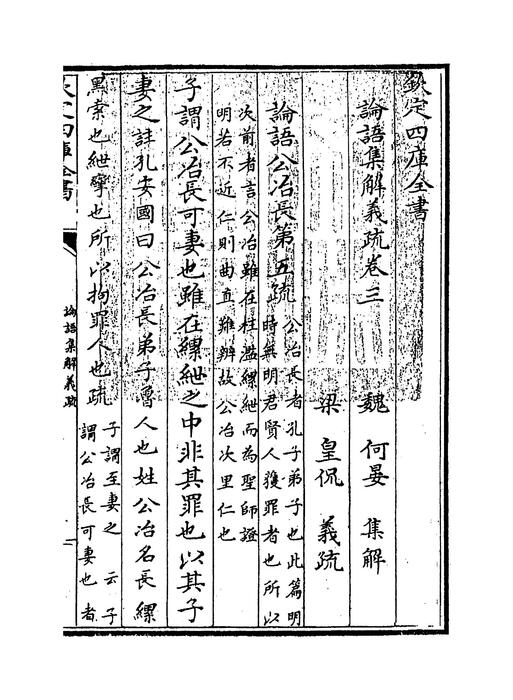 欽定四庫全書
論語集解義疏卷三
魏 何晏 集解
梁 皇侃 義疏
論語公冶長第五疏
公冶長者孔子弟子也此篇明
時無明君賢人獲罪者也所以
次前者言公冶雖在枉濫縲紲而為聖師證
明若不近仁則曲直難辨故公冶次里仁也
子謂公冶長可妻也雖在縲紲之中非其罪也以其子
妻之註孔安國曰公冶長弟子魯人也姓公冶名長縲
黑索也紲攣也所以拘罪人也疏
子謂至妻之 云子
謂公冶長可妻也者
欽定四庫全書
論語集解義疏